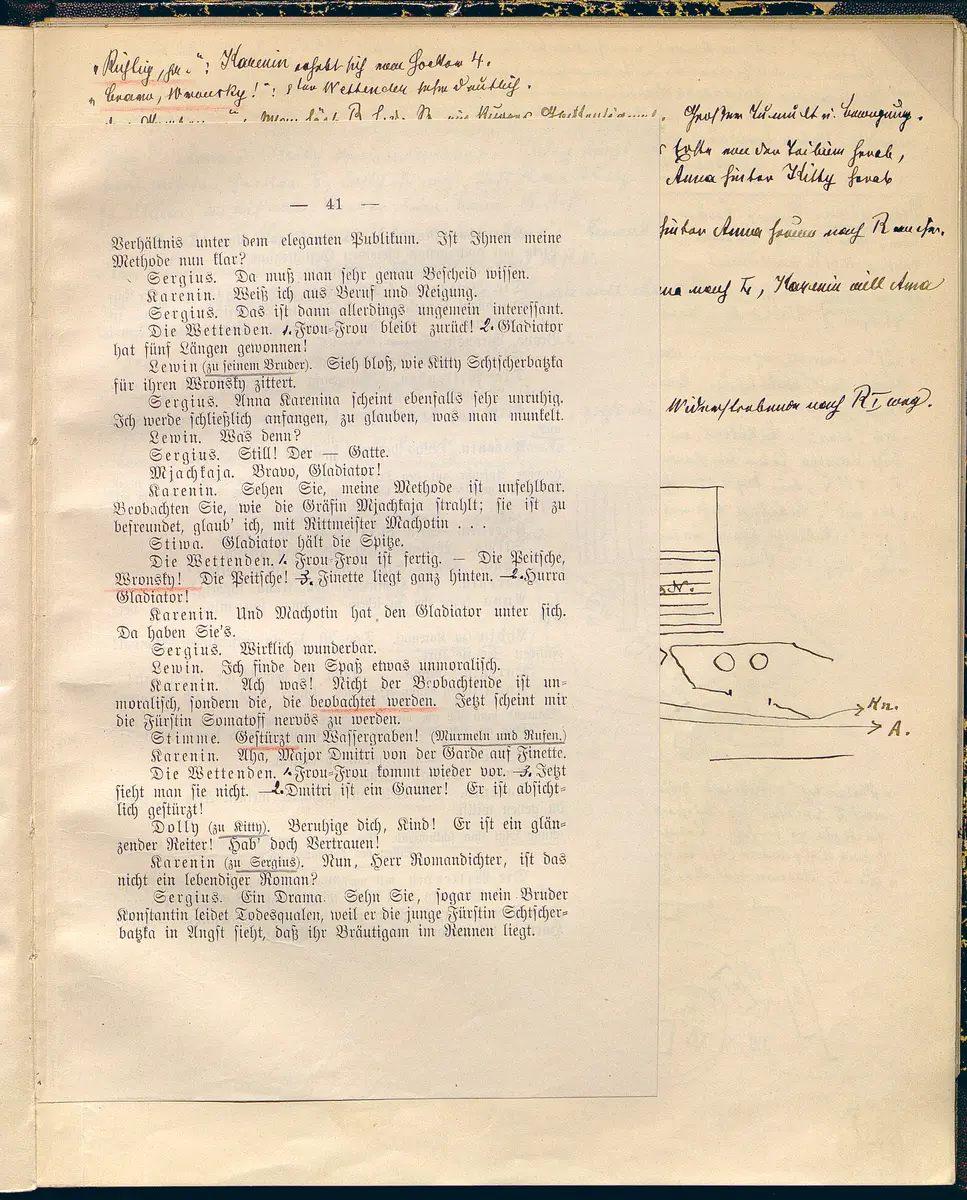 „Richtig, Hr.“: Karenin erhebt sich vom Hocker 4.
„Bravo, Wronsky!“: 1ter Wettenden sehr deutlich.
Großer Tumult u. Bewegung.
von der Tribüne herab,
Anna hinter Kitty herab
hinter Anna herum nach R
nach L, Karenin will Anna
Widerstrebende nach R I weg.
— 41 —
Verhältnis unter dem eleganten Publikum. Ist Ihnen meine
Methode nun klar?
Sergius. Da muß man sehr genau Bescheid wissen.
Karenin. Weiß ich aus Beruf und Neigung.
Sergius. Das ist dann allerdings ungemein interessant.
Die Wettenden. 1. Frou-Frou bleibt zurück! 2. Gladiator
hat fünf Längen gewonnen!
Lewin (zu seinem Bruder). Sieh bloß, wie Kitty Schtscherbatzka
für ihren Wronsky zittert.
Sergius. Anna Karenina scheint ebenfalls sehr unruhig.
Ich werde schließlich anfangen, zu glauben, was man munkelt.
Lewin. Was denn?
Sergius. Still! Der — Gatte.
Mjachkaja. Bravo, Gladiator!
Karenin. Sehen Sie, meine Methode ist unfehlbar.
Beobachten Sie, wie die Gräfin Mjachkaja strahlt; sie ist zu
befreundet, glaub' ich, mit Rittmeister Machotin . . .
Stiwa. Gladiator hält die Spitze.
Die Wettenden. 1. Frou-Frou ist fertig. — Die Peitsche,
Wronsky! Die Peitsche! — 3. Finette liegt ganz hinten. — 2. Hurra
Gladiator!
Karenin. Und Machotin hat den Gladiator unter sich.
Da haben Sie's.
Sergius. Wirklich wunderbar.
Lewin. Ich finde den Spaß etwas unmoralisch.
Karenin. Ach was! Nicht der Beobachtende ist un-
moralisch, sondern die, die beobachtet werden. Jetzt scheint mir
die Fürstin Somatoff nervös zu werden.
Stimme. Gestürzt am Wassergraben! (Murmeln und Rufen.)
Karenin. Aha, Major Dmitri von der Garde auf Finette.
Die Wettenden. 1. Frou-Frou kommt wieder vor. — 3. Jetzt
sieht man sie nicht. — 2. Dmitri ist ein Gauner! Er ist absicht-
lich gestürzt!
Dolly (zu Kitty). Beruhige dich, Kind! Er ist ein glän-
zender Reiter! Hab' doch Vertrauen!
Karenin (zu Sergius). Nun, Herr Romandichter, ist das
nicht ein lebendiger Roman?
Sergius. Ein Drama. Sehn Sie, sogar mein Bruder
Konstantin leidet Todesqualen, weil er die junge Fürstin Schtscher-
batzka in Angst sieht, daß ihr Bräutigam im Rennen liegt.
N.
Kn.
A.